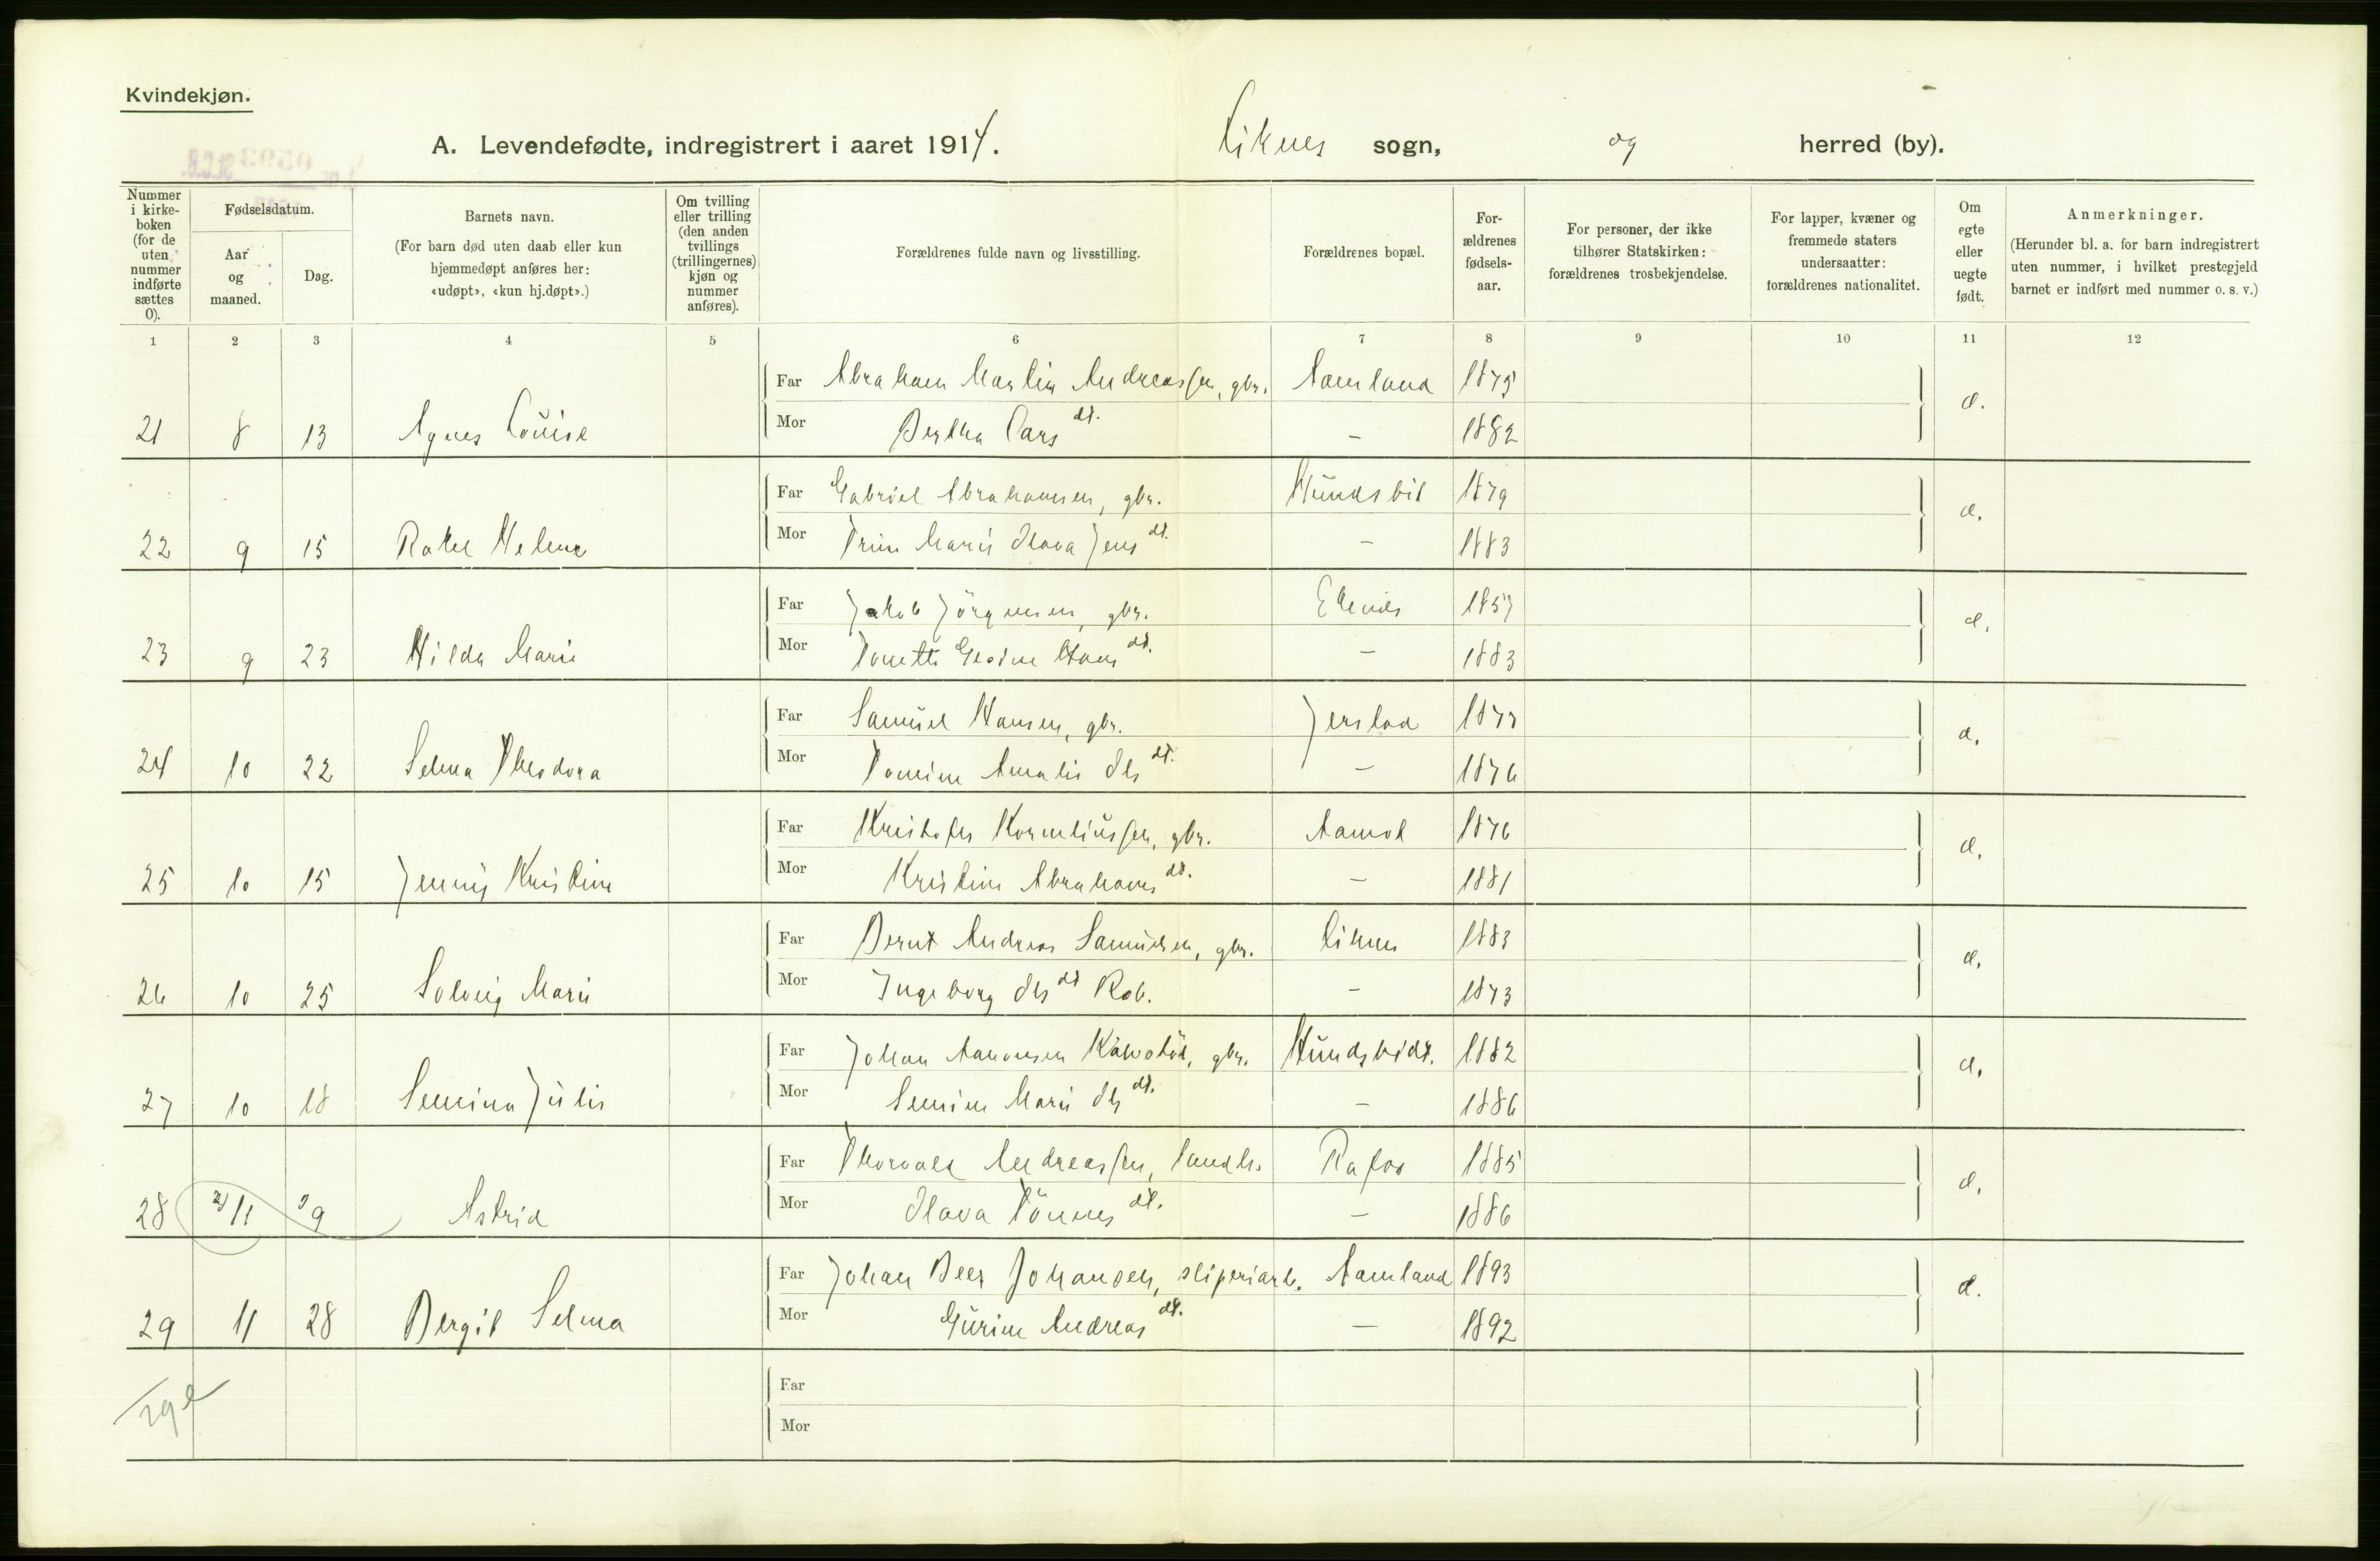 Kvindekjøn.
A. Levendefødte, indregistrert i aaret 1914. Liknes sogn, og herred (by).
Nummer i kirke-boken (for de uten nummer indførte sættes 0).
Fødselsdatum.
Aar og maaned.
Dag.
Barnets navn.
(For barn død uten daab eller kun hjemmedøpt anføres her: «udøpt», «kun hj.døpt».)
Om tvilling eller trilling (den anden tvillings (trillingernes) kjøn og nummer anføres).
Forældrenes fulde navn og livsstilling.
Forældrenes bopæl.
For-ældrenes fødsels-aar.
For personer, der ikke tilhører Statskirken: forældrenes trosbekjendelse.
For lapper, kvæner og fremmede staters undersaatter: forældrenes nationalitet.
Om egte eller uegte født.
Anmerkninger.
(Herunder bl. a. for barn indregistrert uten nummer, i hvilket prestegjeld barnet er indført med nummer o. s. v.)
1 2 3 4 5 6 7 8 9 10 11 12
Far Abraham Martin Andreassen, gbr. Aamland 1875
21 8 13 Agnes Louise Mor Bertha Lars dt. – 1882 d.
Far Gabriel Abrahamsen, gbr. 1879
22 9 15 Rakel Helene Mor Trine Marie Olava Jens dt. – 1883 d.
Far Jakob Jörgensen, gbr. 1857
23 9 23 Hilda Marie Mor Tonette Gesine Hans dt. – 1883 d.
Far Samuel Hansen, gbr. Jerstad 1877
24 10 22 Selma Theodora Mor Tomine Amalie Ols dt. – 1876 d.
Far Kristofer Korneliussen, gbr. Aamot 1876
25 10 15 Jenny Kristine Mor Kristine Abrahams dt. – 1881 d.
Far Bernt Andreas Samuelsen, gbr. Liknes 1883
26 10 25 Solveig Marie Mor Ingeborg Ols dt Rob. – 1873 d.
Far Johan Aanonsen gbr. 1882
27 10 18 Semina Julie Mor Semine Marie Ols dt. – 1886 d.
Far Thorvald Andreassen, Rafos 1885
28 11 9 Astrid Mor Olava Tönnes dt. – 1886 d.
Far Johan Beer Johansen, sliperiarb. Aamland 1893
29 11 28 Bergit Selma Mor Gurine Andreas dt. – 1892 d.
Far
Mor